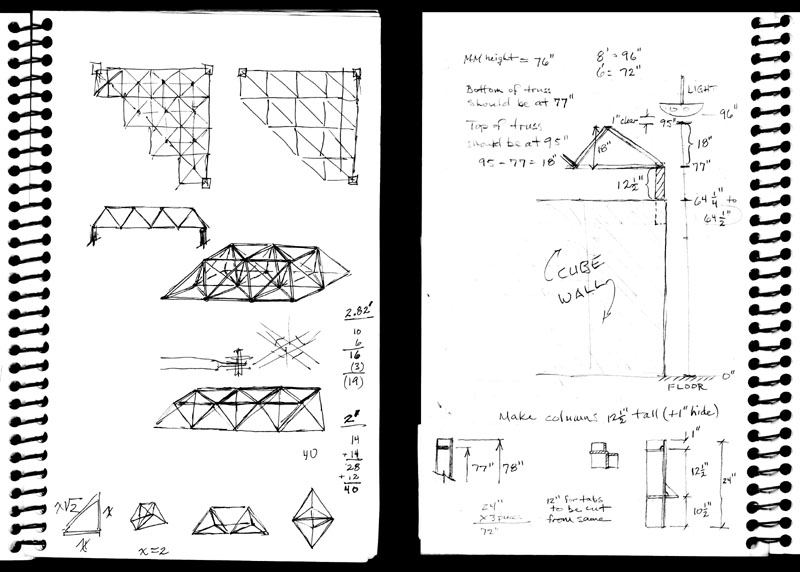 2.82"
10
6
16
(3)
(19)
2"
14
+14
28
+12
40
40
x√2
x
x
x=2
MM height = 76"
8' = 96"
6' = 72"
Bottom of truss
should be at 77"
Top of truss
should be at 95"
95 - 77 = 18"
LIGHT
96"
1" clear
95"
18"
18"
77"
12 1/2"
64 1/4" to
64 1/2"
CUBE
WALL
0"
FLOOR
Make columns 12 1/2" tall (+1" hide)
77"
78"
1"
12 1/2"
24"
10 1/2"
24"
x 3 pieces
72"
12" for tabs
to be cut
from same